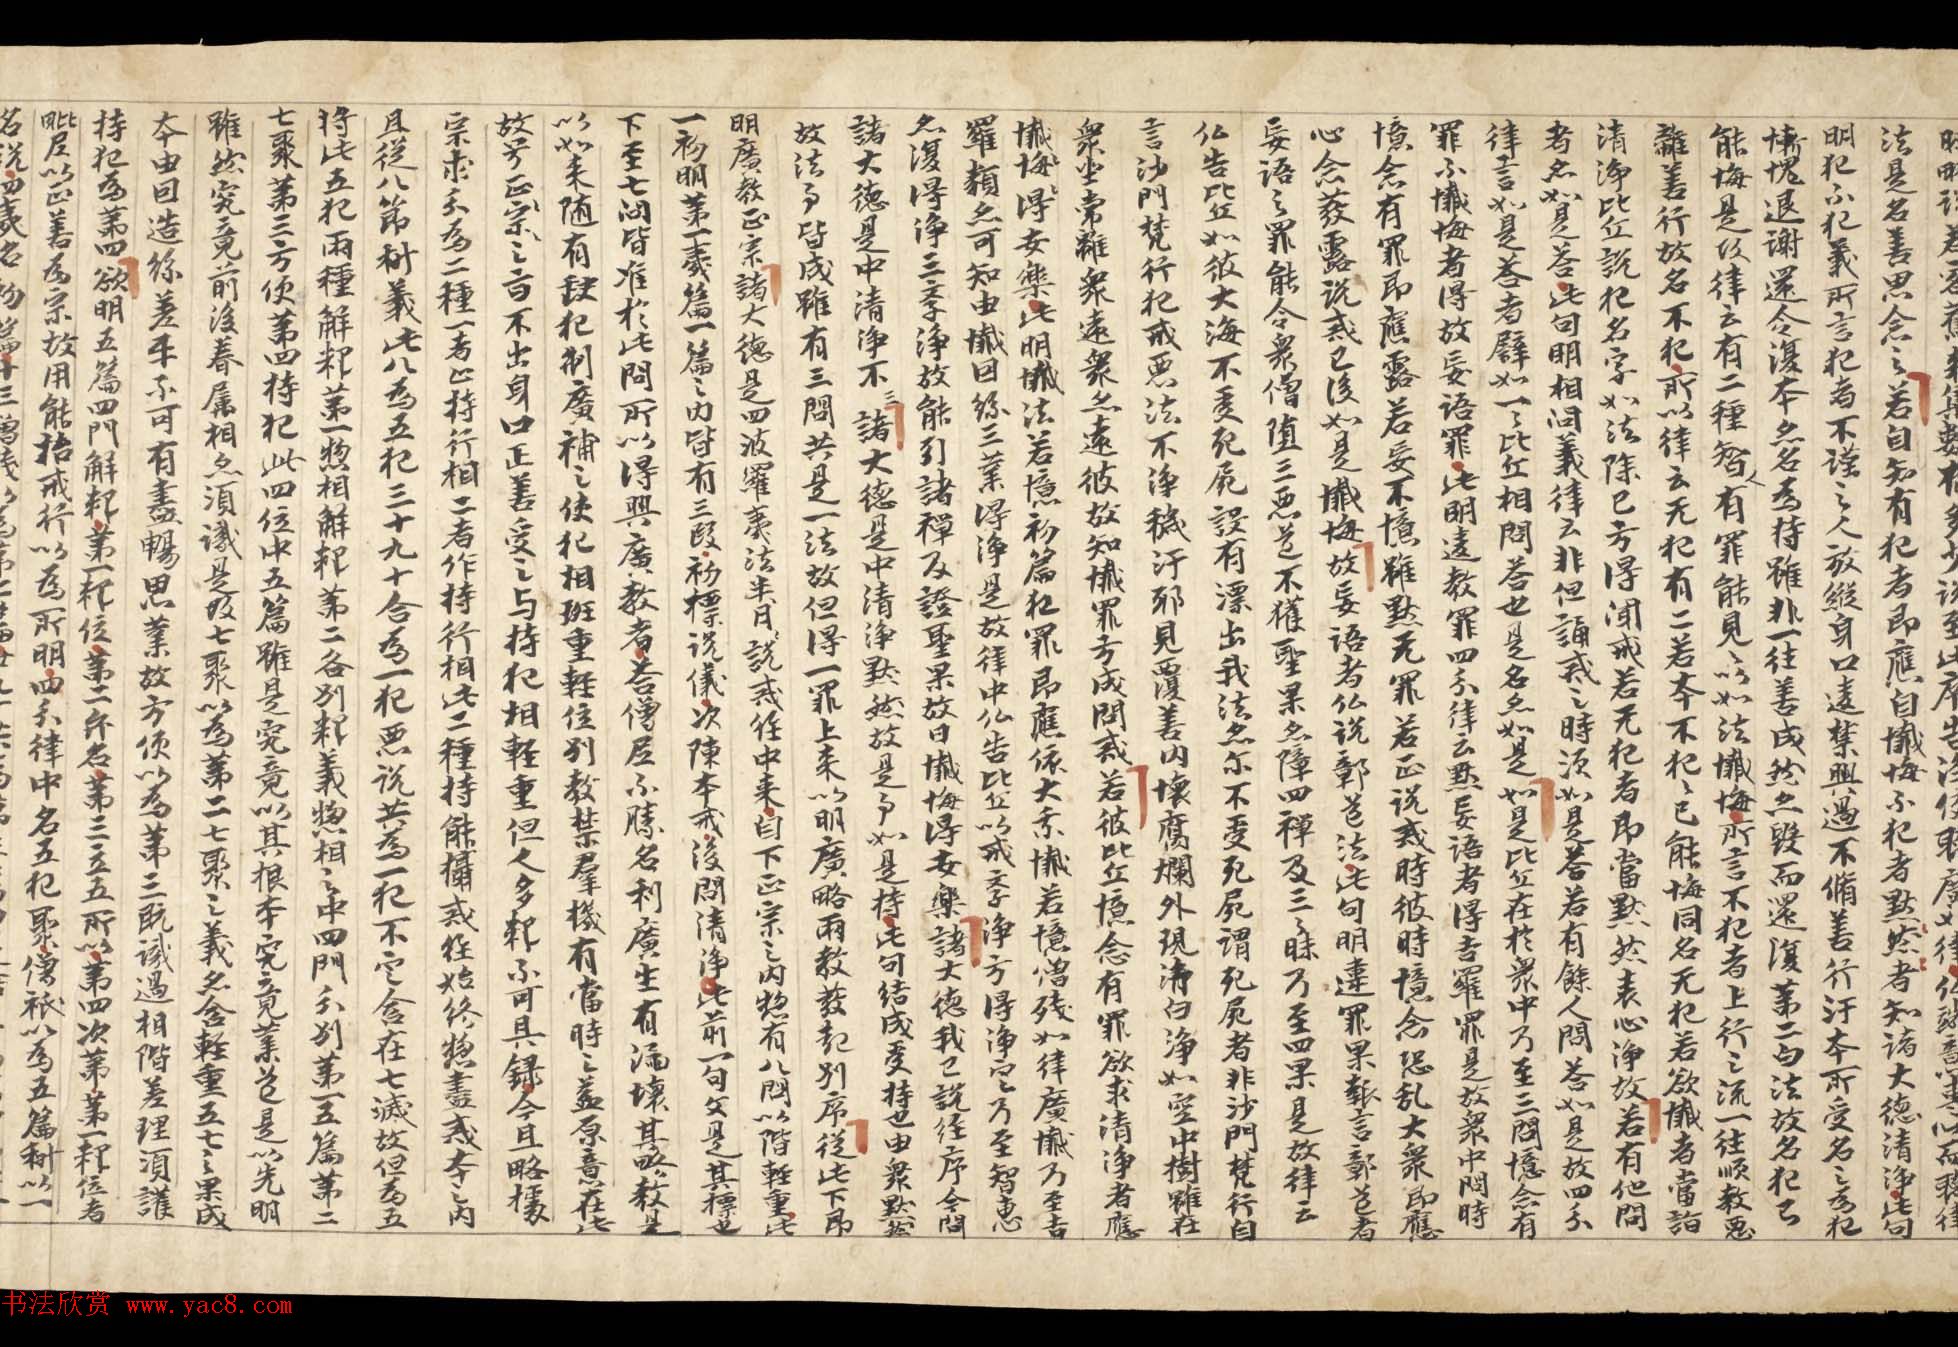 法是名善思念之若自知有犯者即應自懺悔不犯者默然者知諸大德清淨此句
明犯不犯義所言犯者不謹之人放縱身口違禁興過不脩善行汙本所受名之為犯
慚愧退謝還令復本亦名為持雖非一往善成然亦毀而還復第二句法故名犯已
能悔是故律云有二種智人有罪能見見以如法懺悔所言不犯者上行之流一往順教惡
離善行故名不犯所以律云无犯有二若本不犯犯已能悔同名无犯若欲懺者當詣
清淨比丘說犯名字如法除已方得聞戒若无犯者即當默然表心淨故若有他問
者亦如是答此句明相問義律云非但誦戒之時須如是答若有餘人問答如是故四分
律言如是答者譬如一一比丘相問答也是名亦如是如是比丘在於眾中乃至三問憶念有
罪不懺悔者得故妄語罪此明違教罪四分律云默妄語者得吉羅罪是故眾中問時
憶念有罪即應露若妄不憶雖默无罪若正說戒時彼時憶念恐乱大眾即應
心念發露說戒已後如是懺悔故妄語者仏說鄣道法此句明違罪果報言鄣道者
妄語之罪能令眾僧墮三惡道不獲聖果亦障四禪及三三昧乃至四果是故律云
仏告比丘如彼大海不受死屍設有漂出我法亦尔不受死屍謂死屍者非沙門梵行自
言沙門梵行犯戒惡法不淨穢汙耶見覆善內壞腐爛外現清白淨如空中樹雖在
眾坐常離眾遠眾亦遠彼故知懺罪方成問戒若彼比丘憶念有罪欲求清淨者應
懺悔得安樂此明懺法若憶初篇犯罪即應依大乘懺若憶僧殘如律廣懺乃至吉
羅類亦可知由懺因緣三業得淨是故律中仏告比丘以戒淨方得淨定乃至智惠
亦復得淨三業淨故能引諸禪及證聖果故曰懺悔得安樂諸大德我已說經序今問
諸大德是中清淨不三諸大德是中清淨默然故是事如是持此句結成受持也由眾默然
故法事皆成雖有三問共是一法故但得一罪上來以明廣略兩教發起別序從此下即
明廣教正宗諸大德是四波羅夷法半月說戒經中來自下正宗之內惣有八門以階輕重此
一初明第一夷篇一篇之內皆有三段初標說儀次陳本戒後問清淨此前一句文是其標也
下至七問皆准於此問所以得興廣教者答僧尼不勝名利廣生有漏壞其略教是
以如來隨有𠸶犯制廣補之使犯相班重輕位別教禁羣機有當時之益原意在此
故号正宗宗之言不出身口正善受之与持犯相輕重但人多釋不可具錄今且略據
宗求分為二種一者止持行相二者作持行相此二種持能攝戒經始終惣盡戒本之內
且從八節料義此八為五犯三十九十合為一犯惡說共為一犯不定含在七滅故但為五
將此五犯兩種解釋第一惣相解釋第二各別釋義惣相之中四門分別第一五篇第二
七聚第三方便第四持犯此四位中五篇雖是究竟以其根本究竟業道是以先明
雖然究竟前後眷属相亦須識是故七聚以為第二七聚之義名含輕重五七之果成
本由因造緣差乖不可有盡暢思業故方便以為第三既識過相階差理須護
持犯為第四欲明五篇四門解釋第一釋位第二弁名第三立五所以第四次第第一釋位者
毗尼以止善為宗故用能捨戒行以為所明四分律中名五犯聚僧祇以為五篇料以一
书法欣赏 www.yac8.com